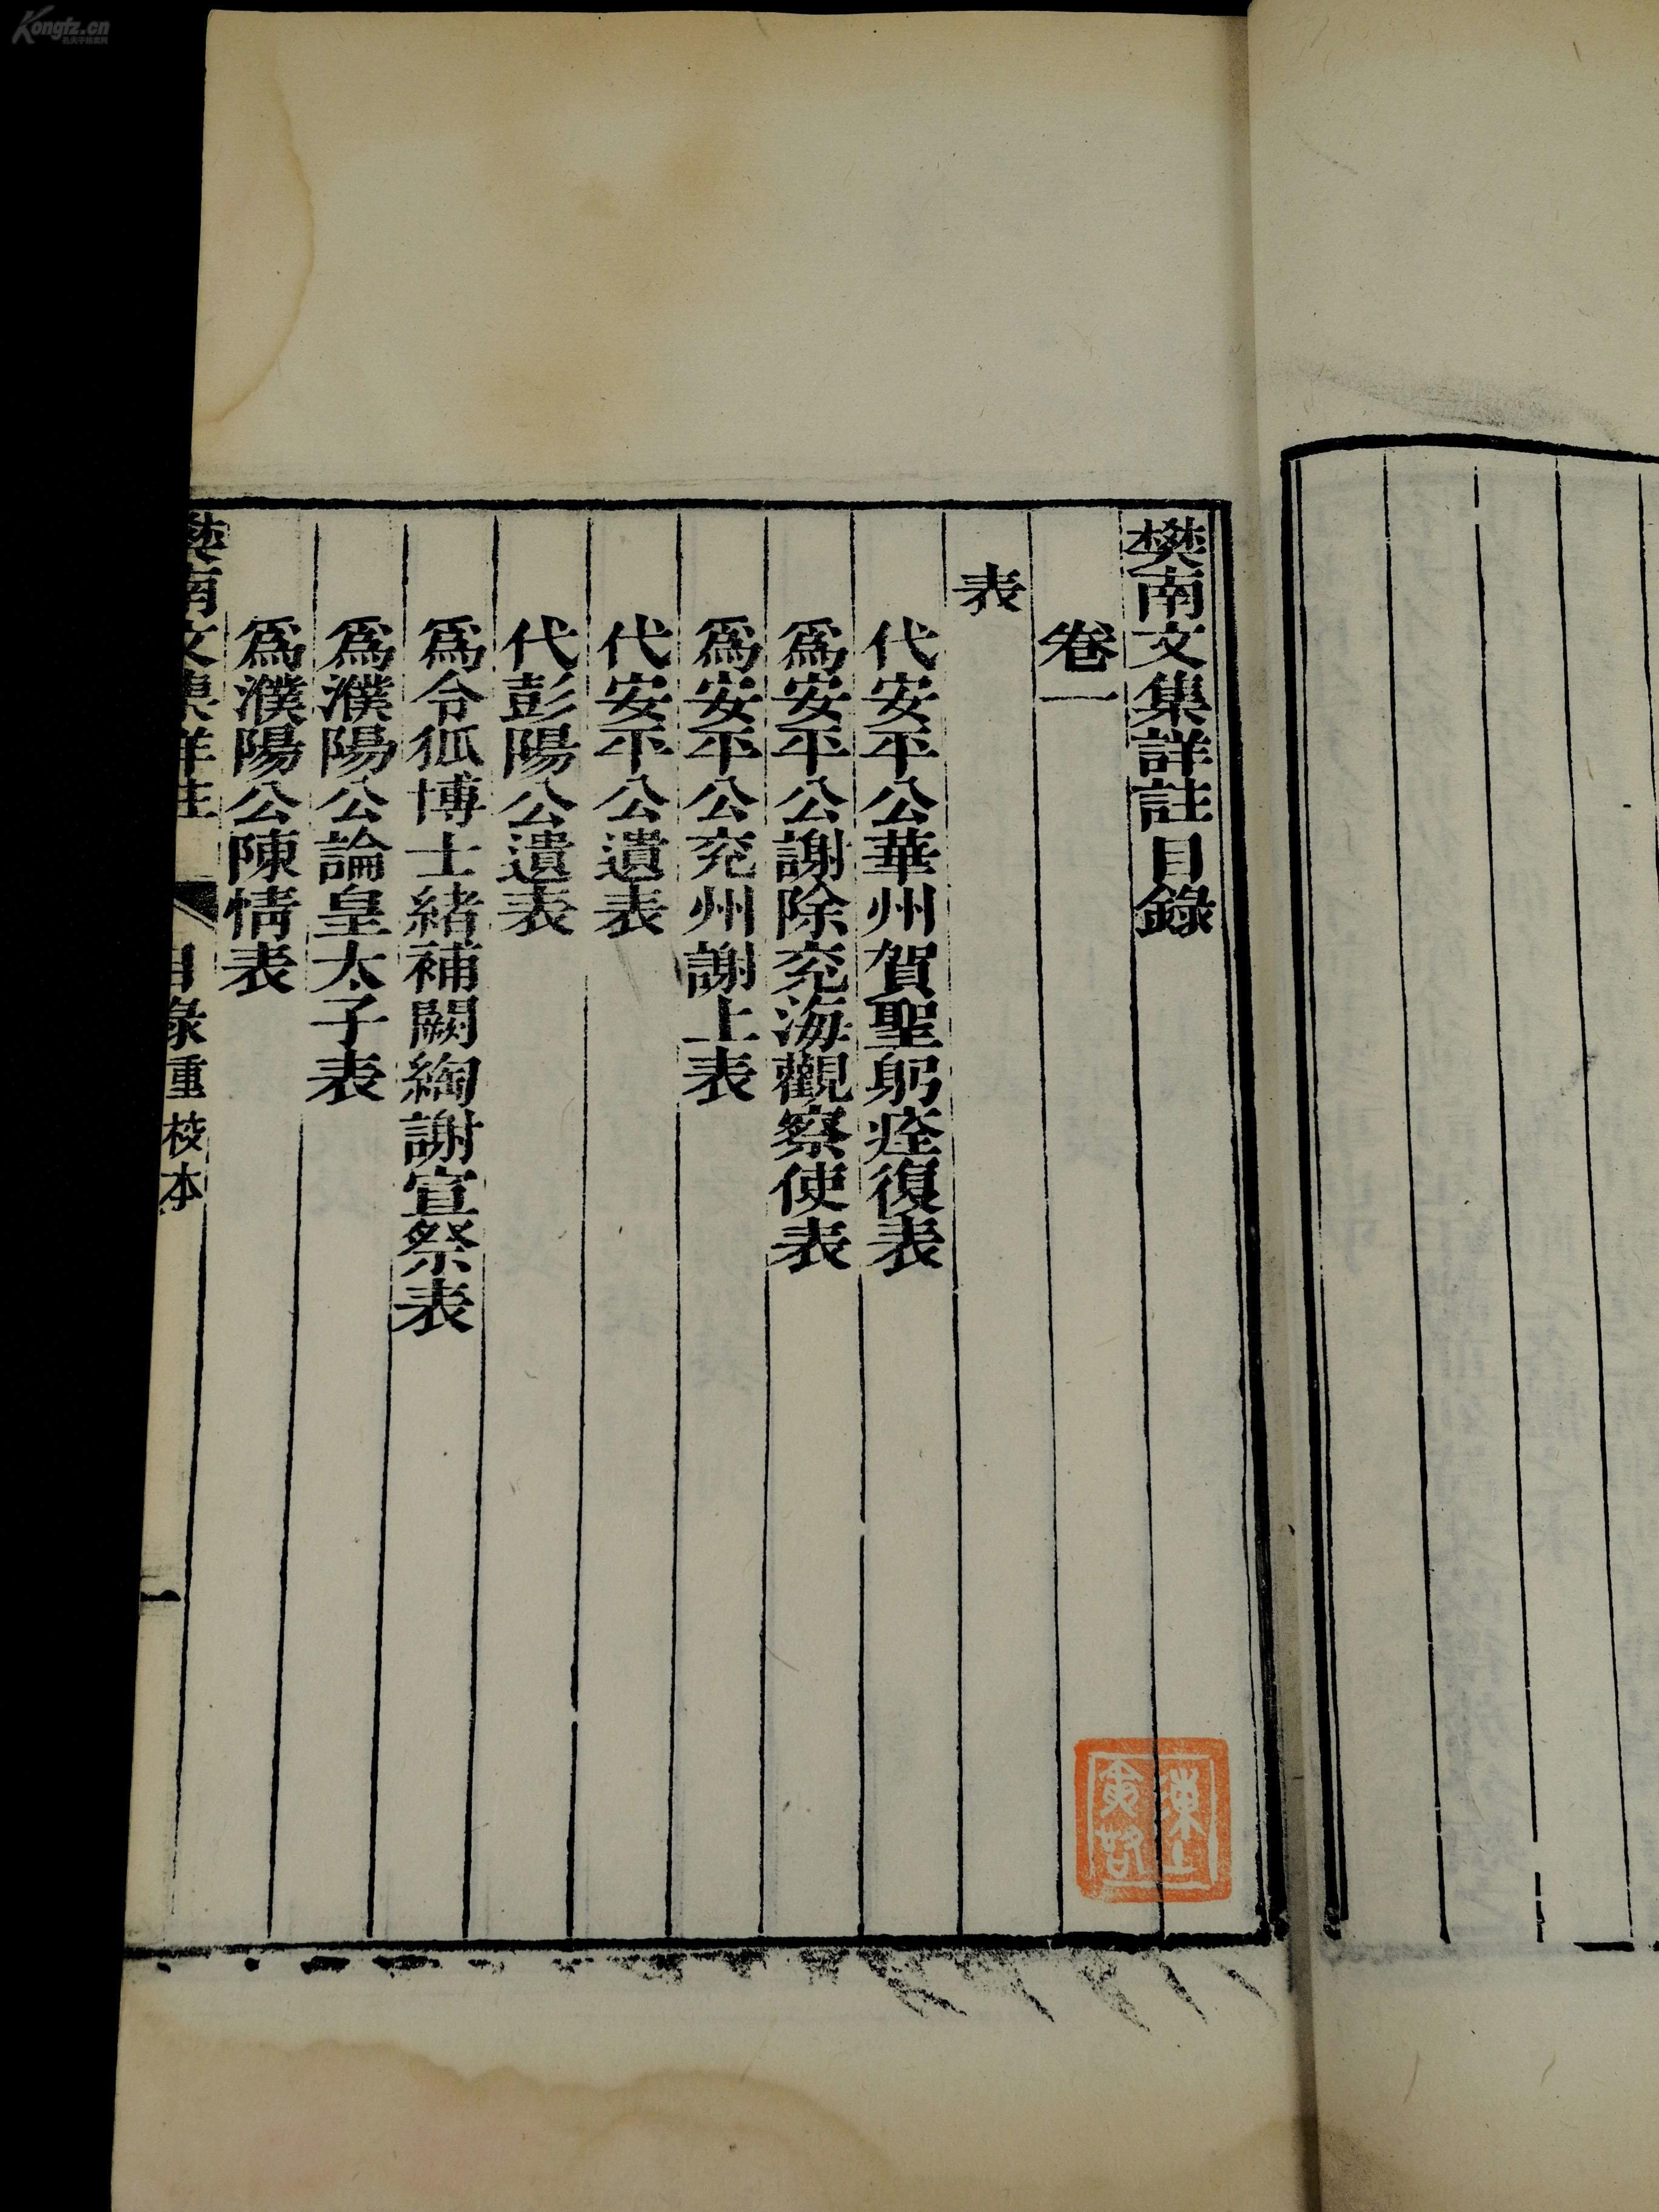 樊南文集詳註目錄
卷一
表
代安平公華州賀聖躬痊復表
爲安平公謝除兖海觀察使表
爲安平公兖州謝上表
代安平公遺表
代彭陽公遺表
爲令狐博士緒補闕綯謝宣祭表
爲濮陽公論皇太子表
爲濮陽公陳情表
樊南文集詳註
目錄重校本
一
Kongfz.cn